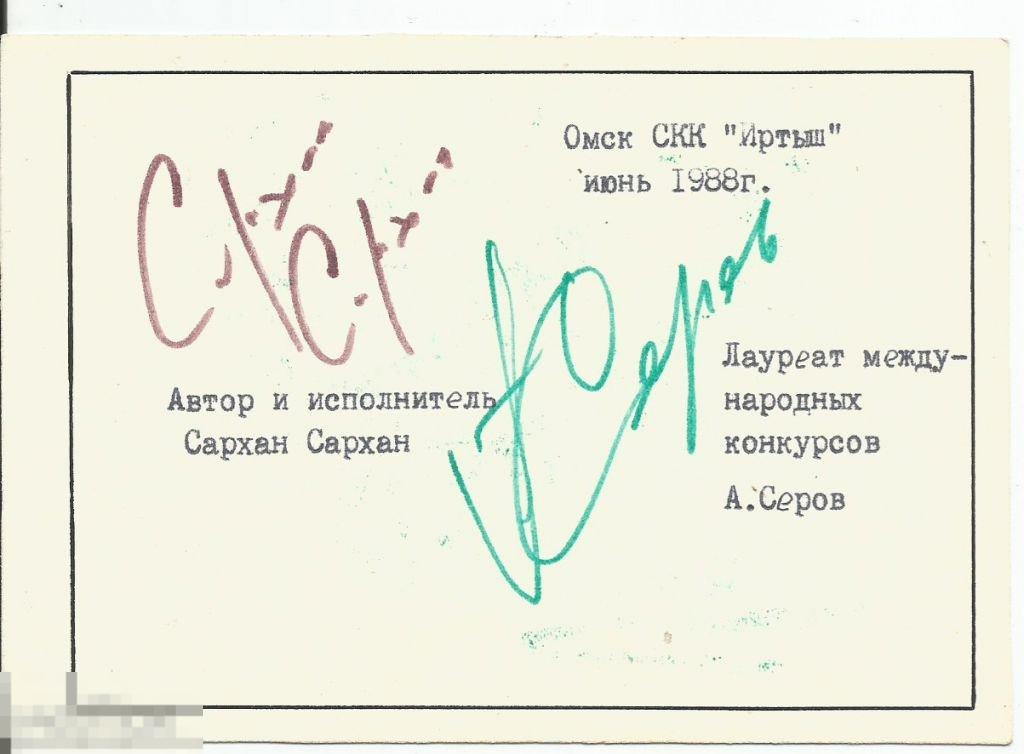 Омск СКК "Иртыш"
июнь 1988г.
Автор и исполнитель
Сархан Сархан
Серов
Лауреат между-
народных
конкурсов
А.Серов